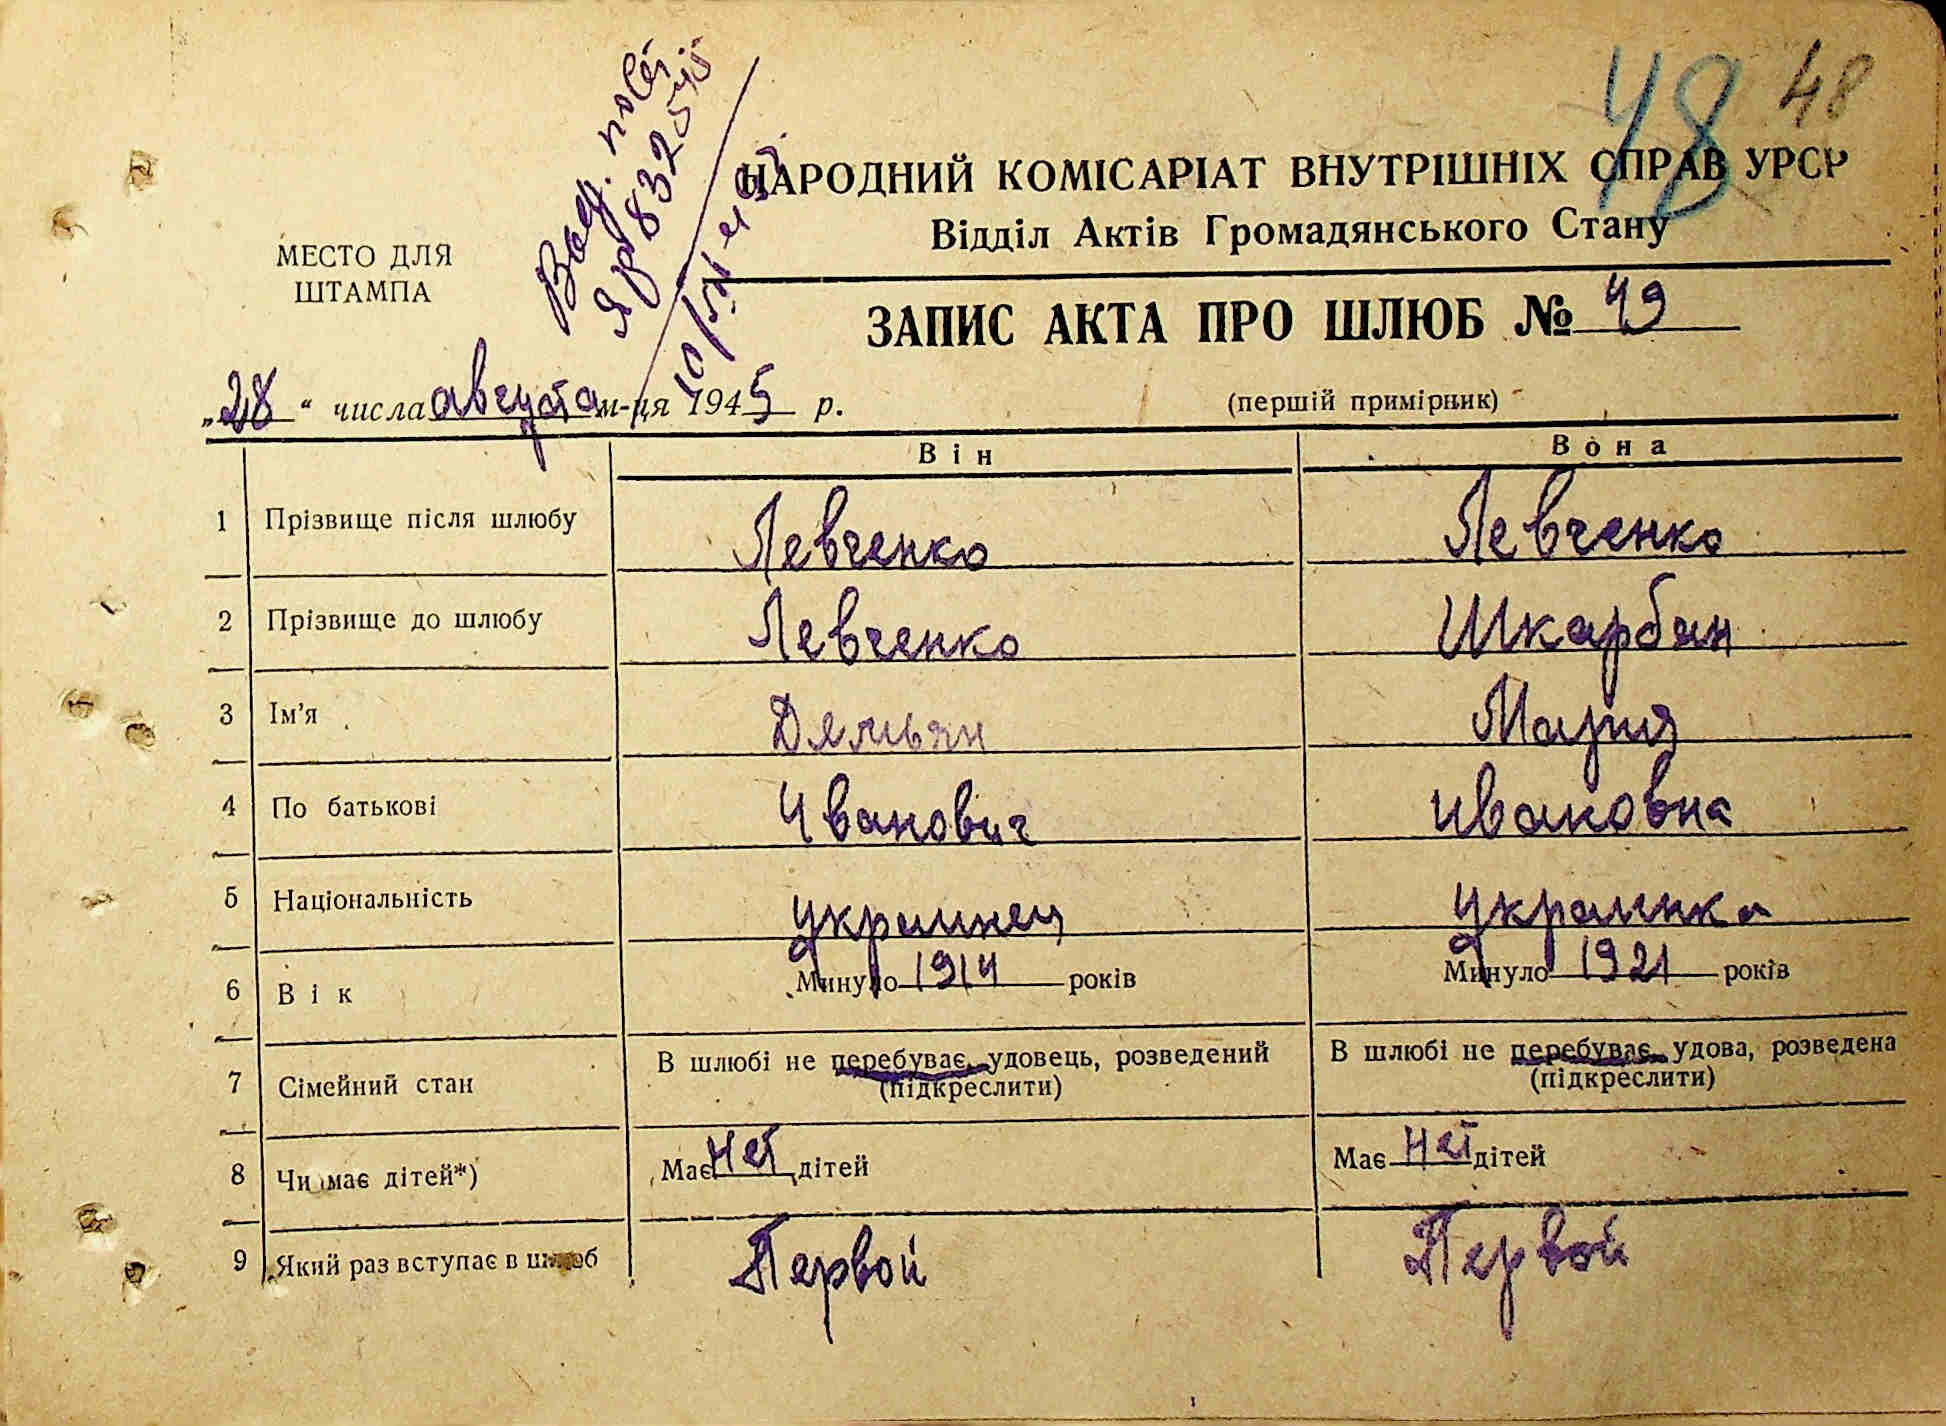 48 48
НАРОДНИЙ КОМІСАРІАТ ВНУТРІШНІХ СПРАВ УРСР
Відділ Актів Громадянського Стану
МЕСТО ДЛЯ
ШТАМПА
ЗАПИС АКТА ПРО ШЛЮБ № 49
„28“ числа августа м-ця 1945 р.
(перший примірник)
Він Вона
1 Прізвище після шлюбу Левченко Левченко
2 Прізвище до шлюбу Левченко Шкарбан
3 Ім'я Демьян Мария
4 По батькові Иванович Ивановна
5 Національність украинец украинка
6 Вік Минуло 1914 років Минуло 1921 років
7 Сімейний стан В шлюбі не перебуває, удовець, розведений (підкреслити) В шлюбі не перебуває, удова, розведена (підкреслити)
8 Чи має дітей*) Має нет дітей Має нет дітей
9 Який раз вступає в шлюб Первой Первой